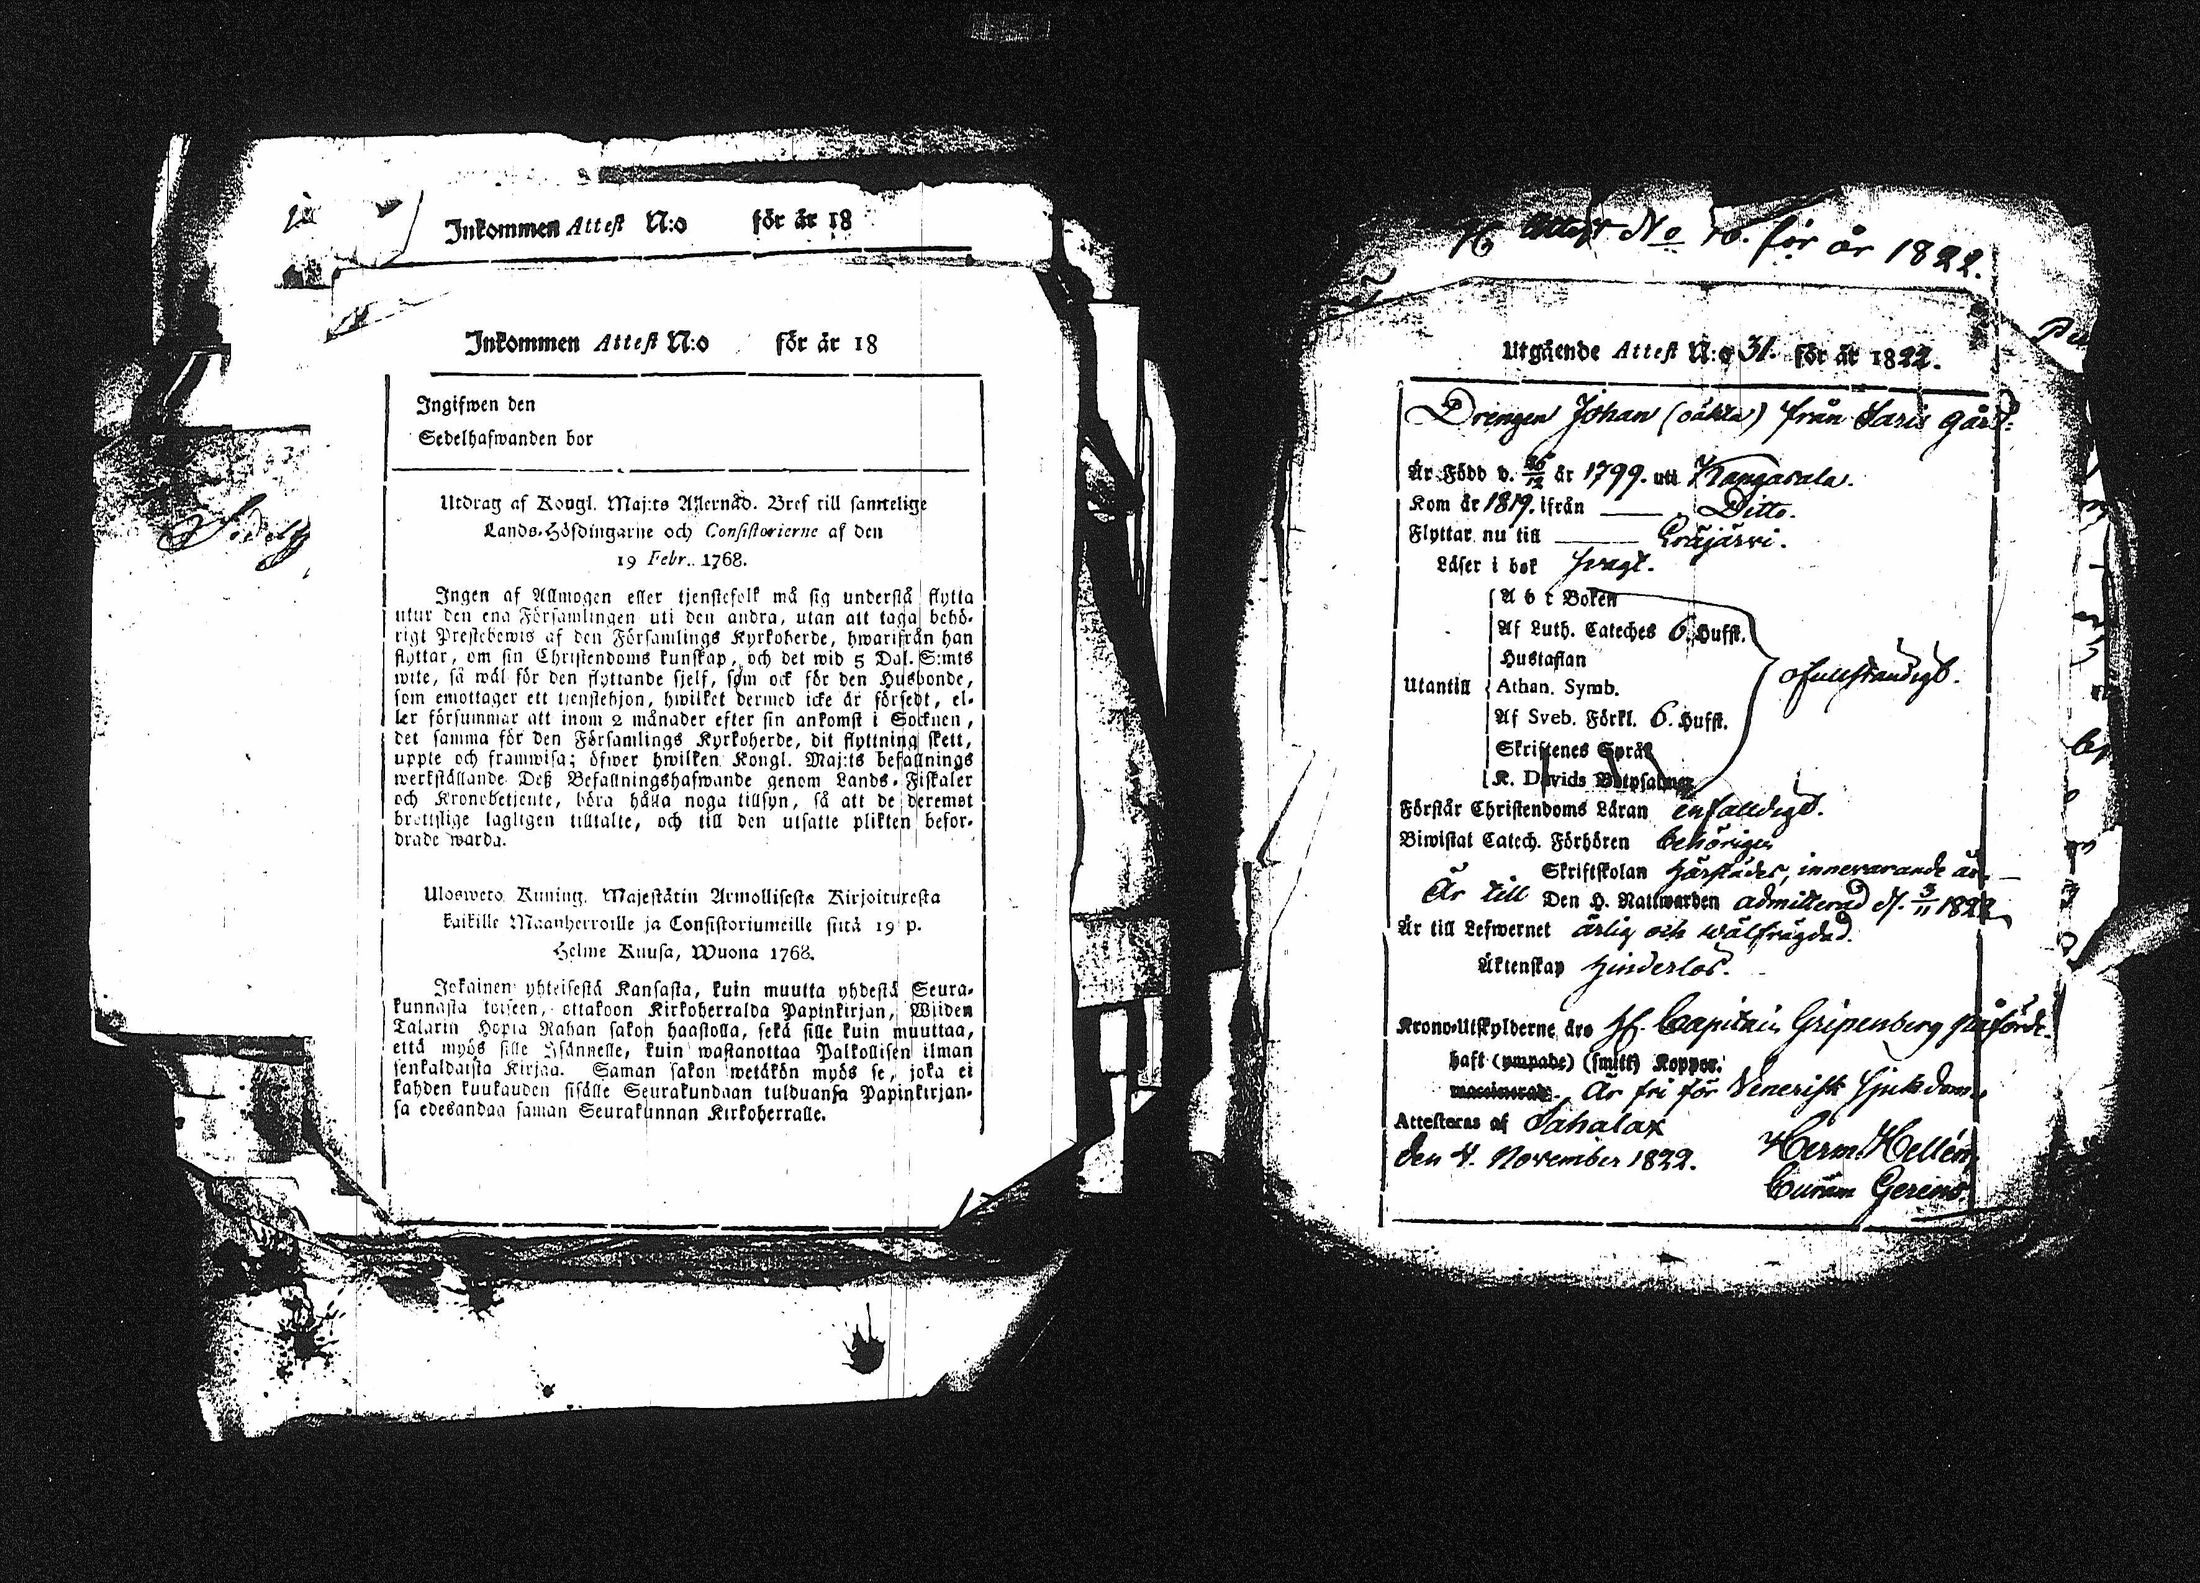 Inkommen Attest N:o för år 18
Inkommen Attest N:o för år 18
Ingifwen den
Sedelhafwanden bor
Utdrag af Kongl. Maj:ts Allernåd. Bref till samtelige
Lands-Höfdingarne och Consistorierne af den
19 Febr. 1768.
Ingen af Allmogen eller tjenstefolk må sig understå flytta
utur den ena Församlingen uti den andra, utan att taga behö-
rigt Prestebewis af den Församlings Kyrkoherde, hwarifrån han
flyttar, om sin Christendoms kunskap, och det wid 5 Dal. S:mts
wite, så wäl för den flyttande sjelf, som ock för den Husbonde,
som emottager ett tjenstehjon, hwilket dermed icke är försedt, el-
ler försummar att inom 2 månader efter sin ankomst i Socknen,
det samma för den Församlings Kyrkoherde, dit flyttning skett,
uppte och framwisa; öfwer hwilken Kongl. Maj:ts befallnings
werkställande Deß Befallningshafwande genom Lands-Fiskaler
och Kronobetjente, böra hålla noga tillsyn, så att de deremot
brottslige lagligen tilltalte, och till den utsatte plikten befor-
drade warda.
Ulosweto Kuning. Majestätin Armollisesta Kirjoituxesta
kaikille Maanherroille ja Consistoriumeille siitä 19 p.
Helme Kuusa, Wuona 1768.
Jokainen yhteisestä Kansasta, kuin muutta yhdestä Seura-
kunnasta toiseen, ottakoon Kirkoherralda Papinkirjan, Wiiden
Talarin Hopia Rahan sakon haastolla, sekä sille kuin muuttaa,
että myös sille Isännelle, kuin wastanottaa Palkollisen ilman
senkaldaista Kirjaa. Saman sakon wetäkön myös se, joka ei
kahden kuukauden sisälle Seurakundaan tulduansa Papinkirjan-
sa edesandaa saman Seurakunnan Kirkoherralle.
Sedelh
Attest No 70. för år 1822.
Utgående Attest N:o 31. för år 1822.
Drengen Johan (oäkta) från Saris gård.
Är Född d. 26/12 år 1799. uti Kangasala.
Kom år 1819. ifrån Ditto.
Flyttar nu till Eräjärvi.
Läser i bok svagt.
A b c Boken
Af Luth. Cateches 6. Hufst.
Hustaflan
Utantill Athan. Symb. ofullständigt.
Af Sveb. Förkl. 6. Hufst.
Skriftenes Språk
K. Davids Botpsalmer
Förstår Christendoms Läran enfalldigt.
Biwistat Catech. Förhören behörigen
Skriftskolan härstädes, innevarande år
Är till Den H. Nattwarden admitterad d. 3/11 1822
Är till Lefwernet ärlig och wälfrägdad.
Äktenskap hinderlös.
Krono-Utskylderne äro hf. Capitain Gripenberg påförde.
haft (ympade) (smitt) Koppor.
Är fri för Venerisk Sjukdom.
Attesteras af Sahalax
den 4. November 1822. Herm. Hellén
Curam Gerens.